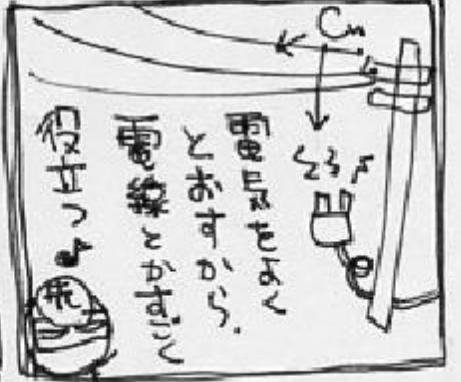 Cu
電気をよく
とおすから、
電線とかすごく
役立つ♪